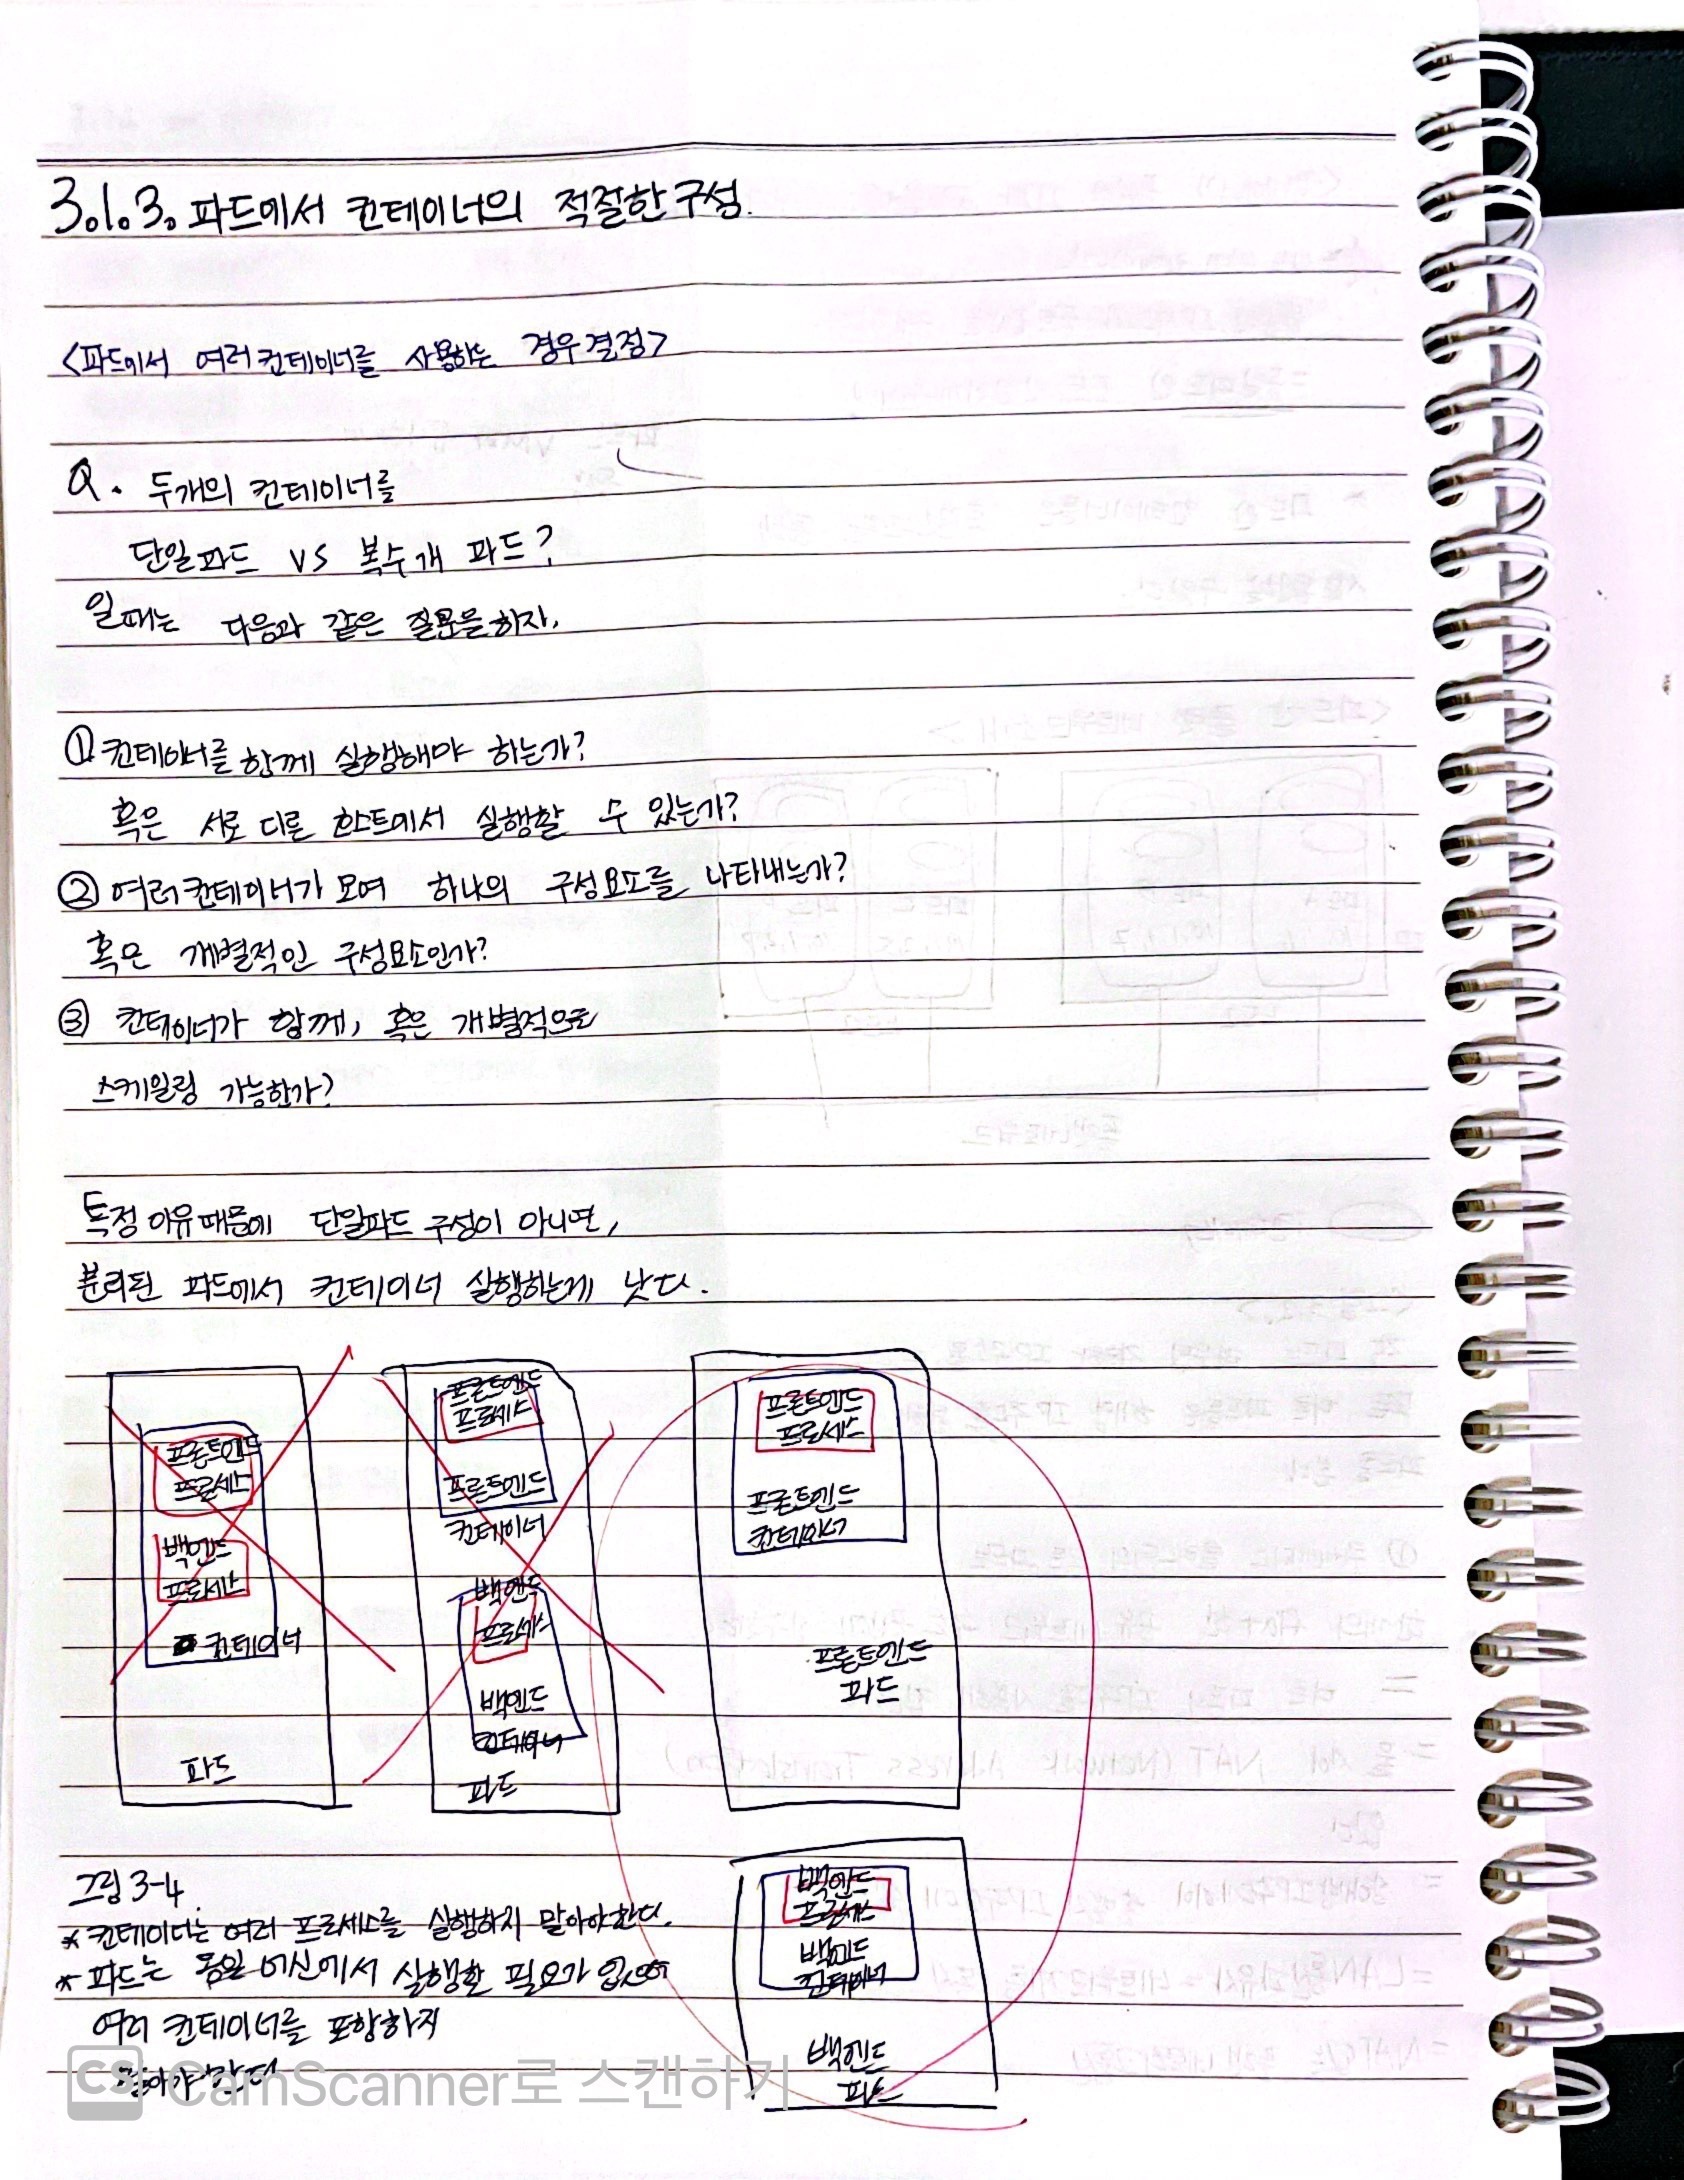 3.1.3. 파드에서 컨테이너의 적절한 구성.
<파드에서 여러 컨테이너를 사용하는 경우 결정>
Q. 두개의 컨테이너를
단일파드 VS 복수개 파드?
일때는 다음과 같은 질문을하자.
① 컨테이너를 함께 실행해야 하는가?
혹은 서로 다른 호스트에서 실행할 수 있는가?
② 여러 컨테이너가 모여 하나의 구성요소를 나타내는가?
혹은 개별적인 구성요소인가?
③ 컨테이너가 함께, 혹은 개별적으로
스케일링 가능한가?
특정 이유 때문에 단일파드 구성이 아니면,
분리된 파드에서 컨테이너 실행하는게 낫다.
프론트엔드
프로세스
백엔드
프로세스
컨테이너
파드
프론트엔드
프로세스
프론트엔드
컨테이너
백엔드
프로세스
백엔드
컨테이너
파드
프론트엔드
프로세스
프론트엔드
컨테이너
프론트엔드
파드
백엔드
프로세스
백엔드
컨테이너
백엔드
파드
그림 3-4.
* 컨테이너는 여러 프로세스를 실행하지 말아야한다.
* 파드는 동일 머신에서 실행할 필요가 없으면
여러 컨테이너를 포함하지
말아야 한다
CS CamScanner로 스캔하기